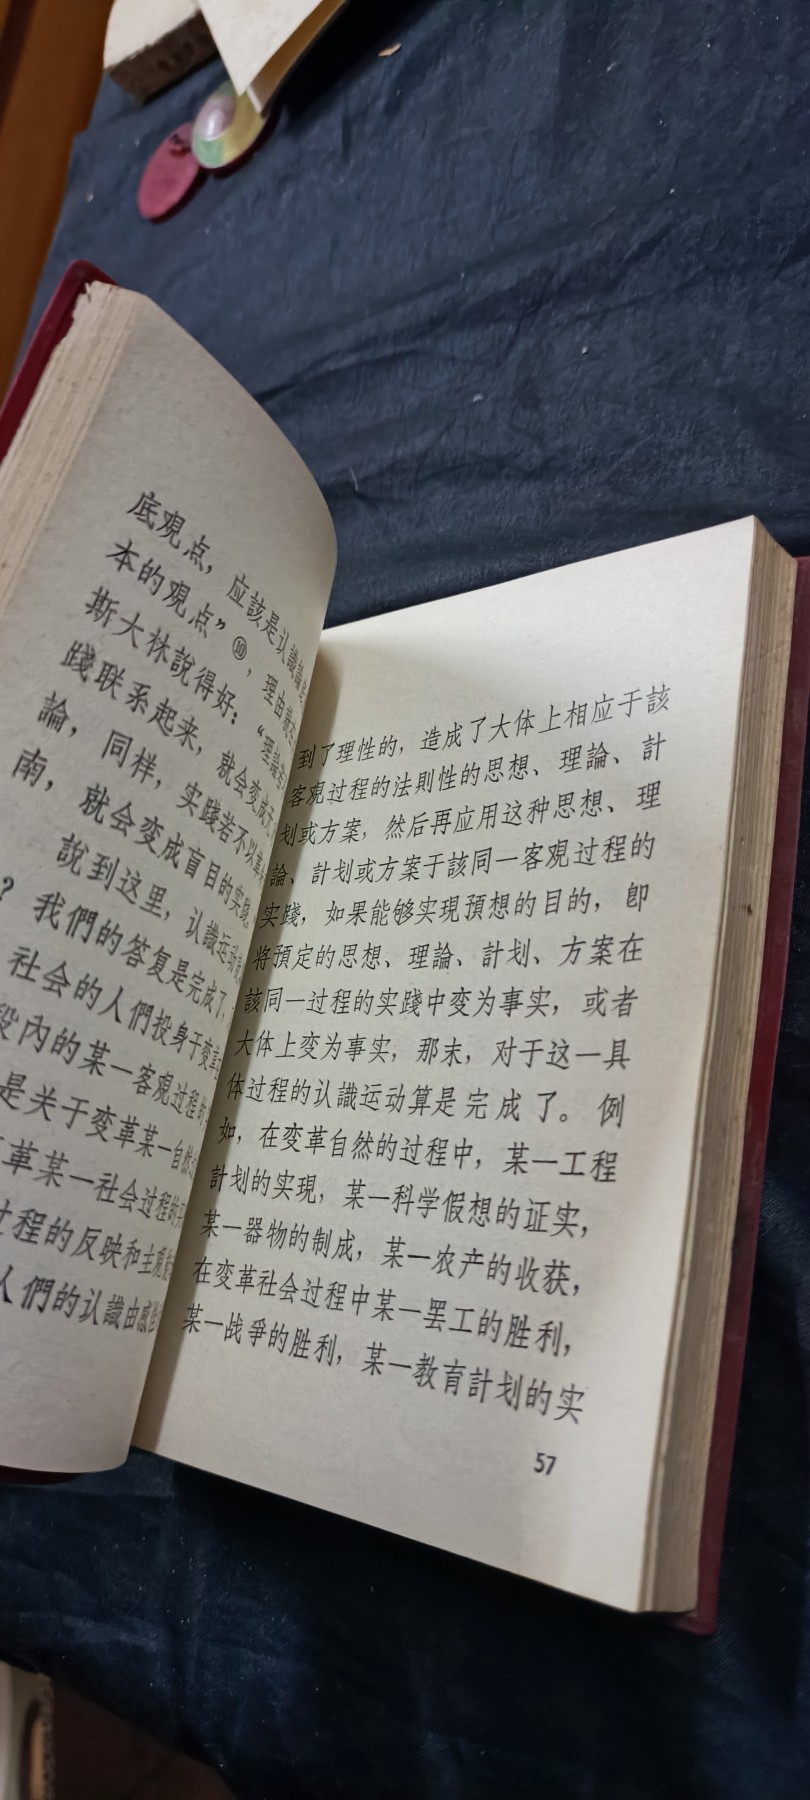 底观点，应該是认識論
本的观点”⑩，理由
斯大林說得好：“理論
踐联系起来，就会变成
論，同样，实踐若不以
南，就会变成盲目的实踐
說到这里，认識运动
？我們的答复是完成了，
社会的人們投身于变革
段內的某一客观过程的
是关于变革某一自然
革某一社会过程的
过程的反映和主观
人們的认識由感
到了理性的，造成了大体上相应于該
客观过程的法則性的思想、理論、計
划或方案，然后再应用这种思想、理
論、計划或方案于該同一客观过程的
实踐，如果能够实現預想的目的，卽
将預定的思想、理論、計划、方案在
該同一过程的实踐中变为事实，或者
大体上变为事实，那末，对于这一具
体过程的认識运动算是完成了。例
如，在变革自然的过程中，某一工程
計划的实現，某一科学假想的证实，
某一器物的制成，某一农产的收获，
在变革社会过程中某一罢工的胜利，
某一战爭的胜利，某一教育計划的实
57